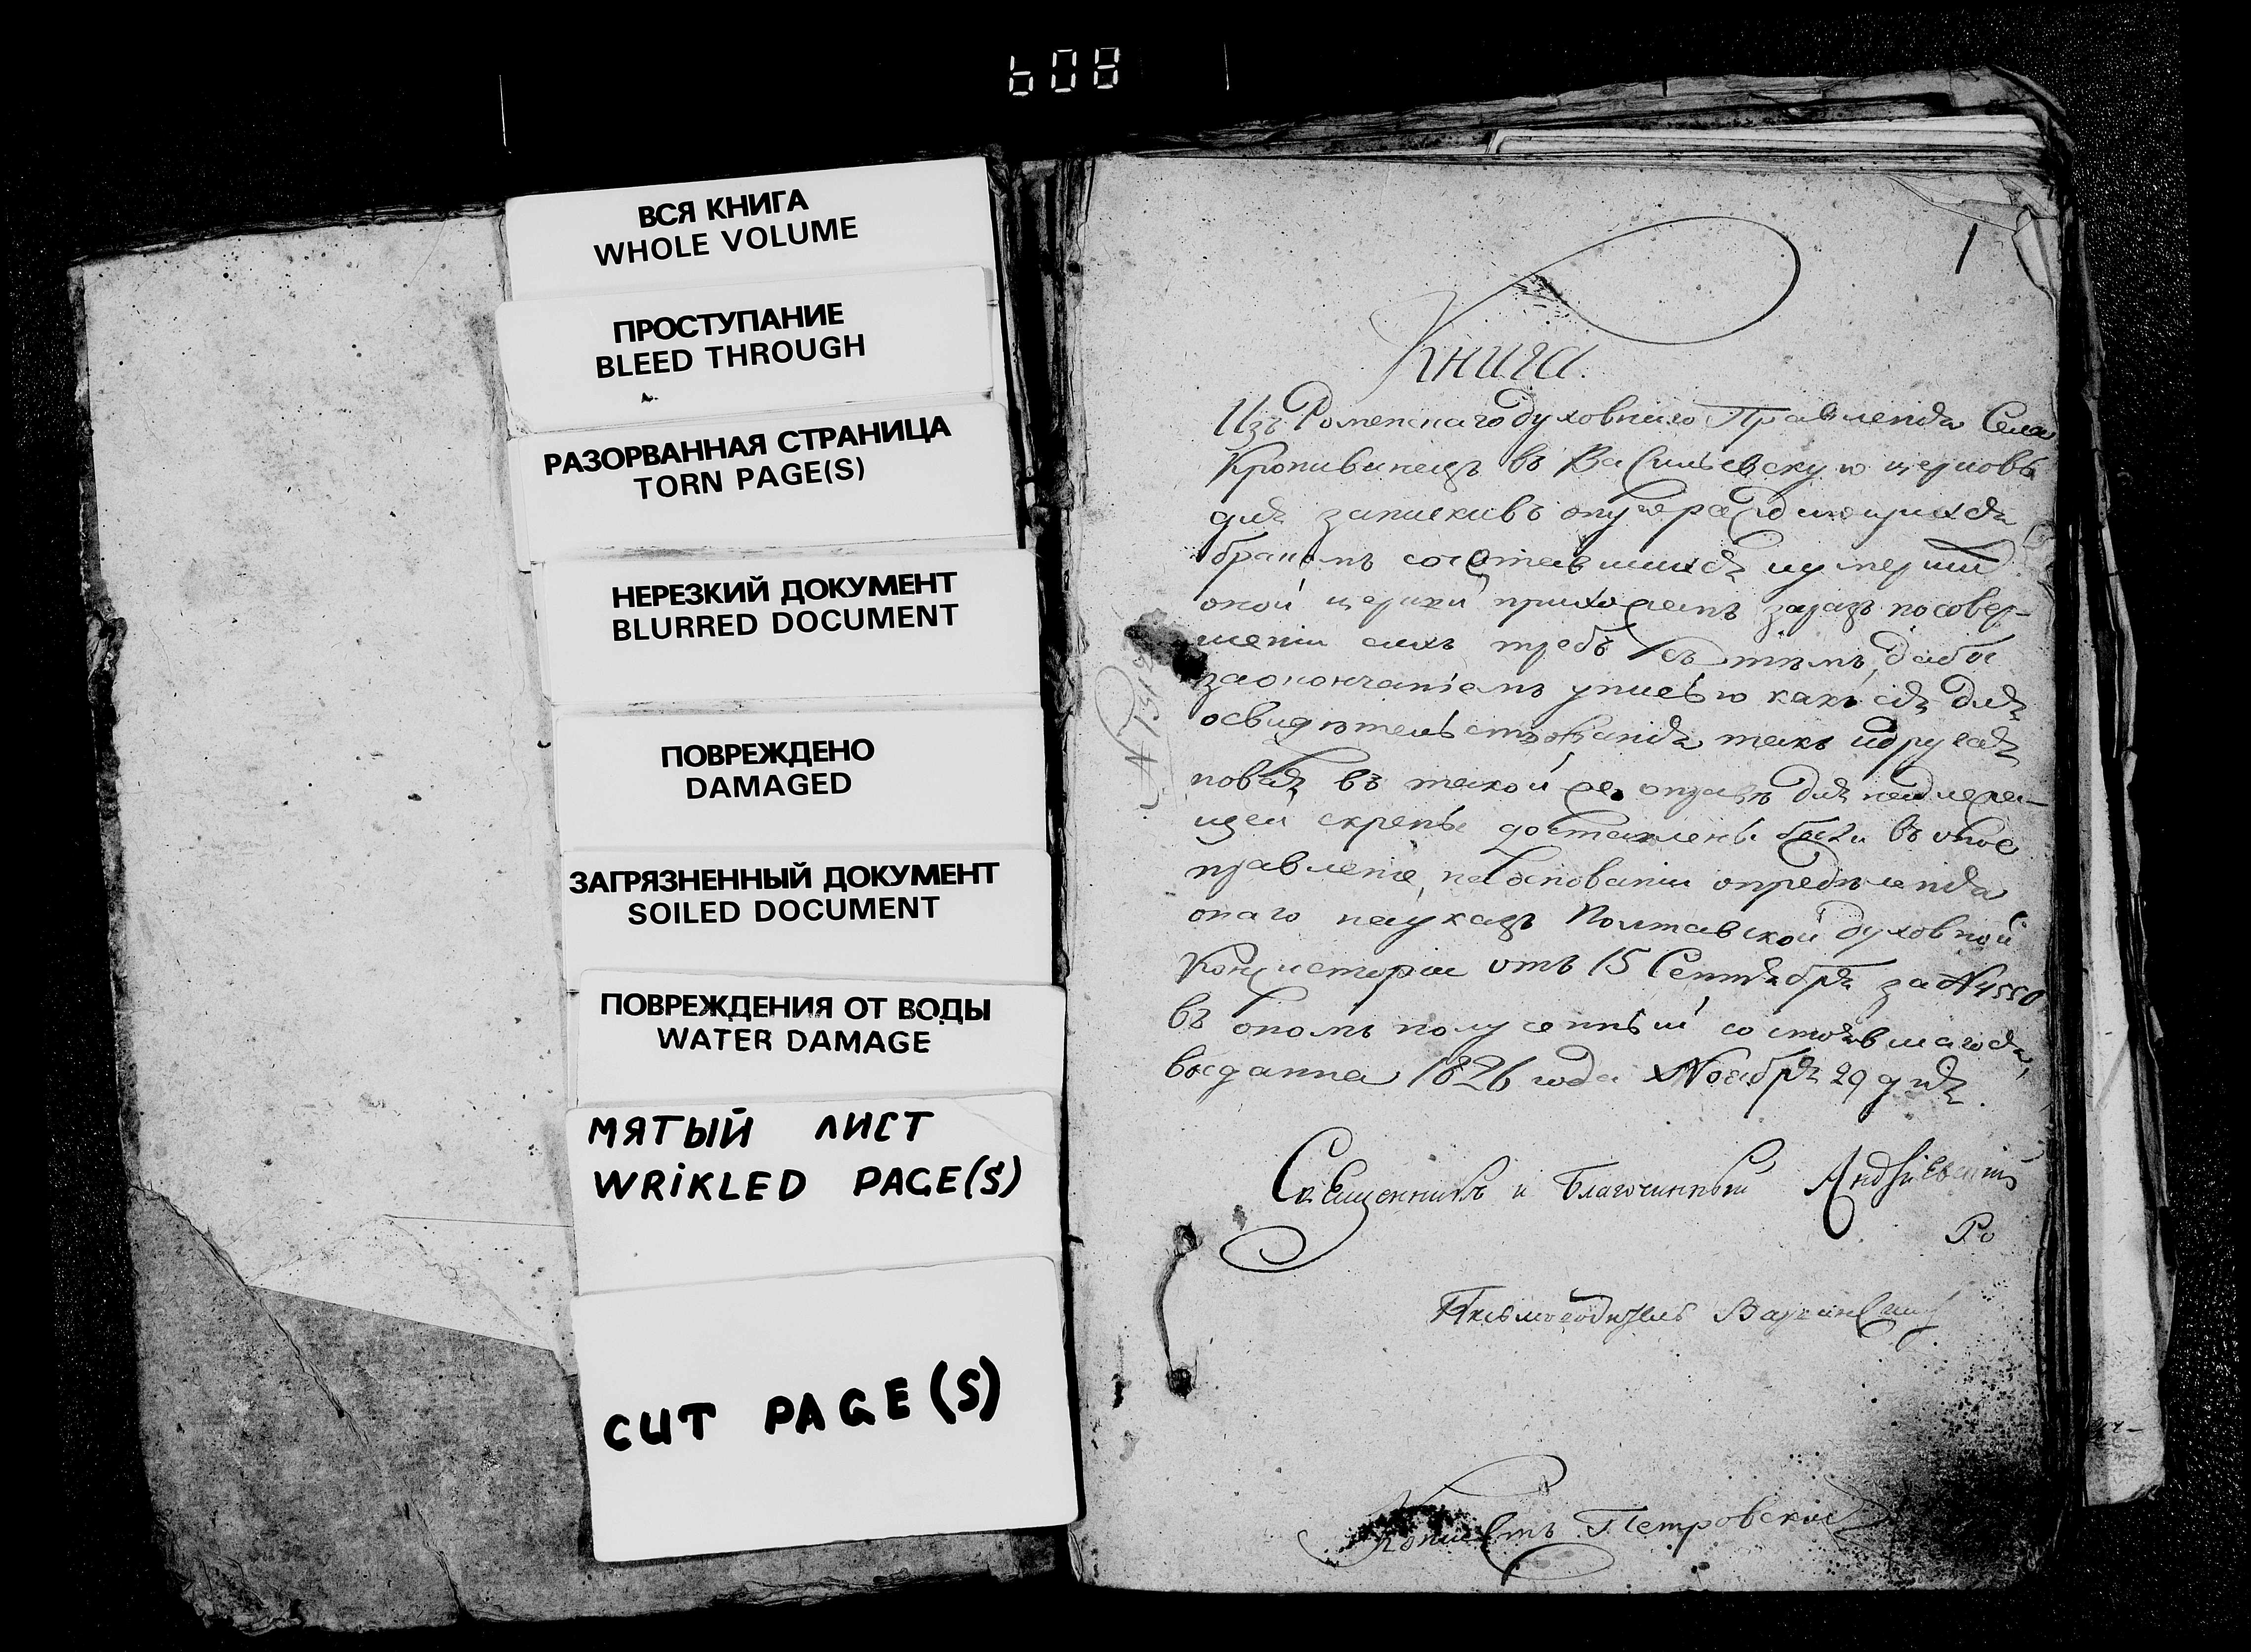 608
ВСЯ КНИГА
WHOLE VOLUME
ПРОСТУПАНИЕ
BLEED THROUGH
РАЗОРВАННАЯ СТРАНИЦА
TORN PAGE(S)
НЕРЕЗКИЙ ДОКУМЕНТ
BLURRED DOCUMENT
ПОВРЕЖДЕНО
DAMAGED
ЗАГРЯЗНЕННЫЙ ДОКУМЕНТ
SOILED DOCUMENT
ПОВРЕЖДЕНИЯ ОТ ВОДЫ
WATER DAMAGE
МЯТЫЙ ЛИСТ
WRiKLED PAGE(S)
CUT PAGE(S)
1
Книга
Изъ Роменскаго духовнаго Правленія Села
Кропивинецъ въ Васильевскую церковь
для записки въ оную раждающихся
бракомъ сочетавшихся и умершихъ
оной церкви прихожанъ заразъ по совер-
шеніи сихъ требъ съ тѣмъ, дабы
за окончаніемъ упиевю какъ сія для
освидѣтельствованія такъ и другая
новая въ такой же для надлежа-
щей скрепы доставлены были въ оное
правленіе, на основаніи опредѣленія
онаго на указъ Полтавской духовной
Консисторіи отъ 15 Сентября за №4550
въ ономъ полученный состоявшагося,
выданна 1826 года Ноября 29 дня.
Священникъ и Благочинный Андріевскій
Письмоводитель
Копіистъ Петровскій